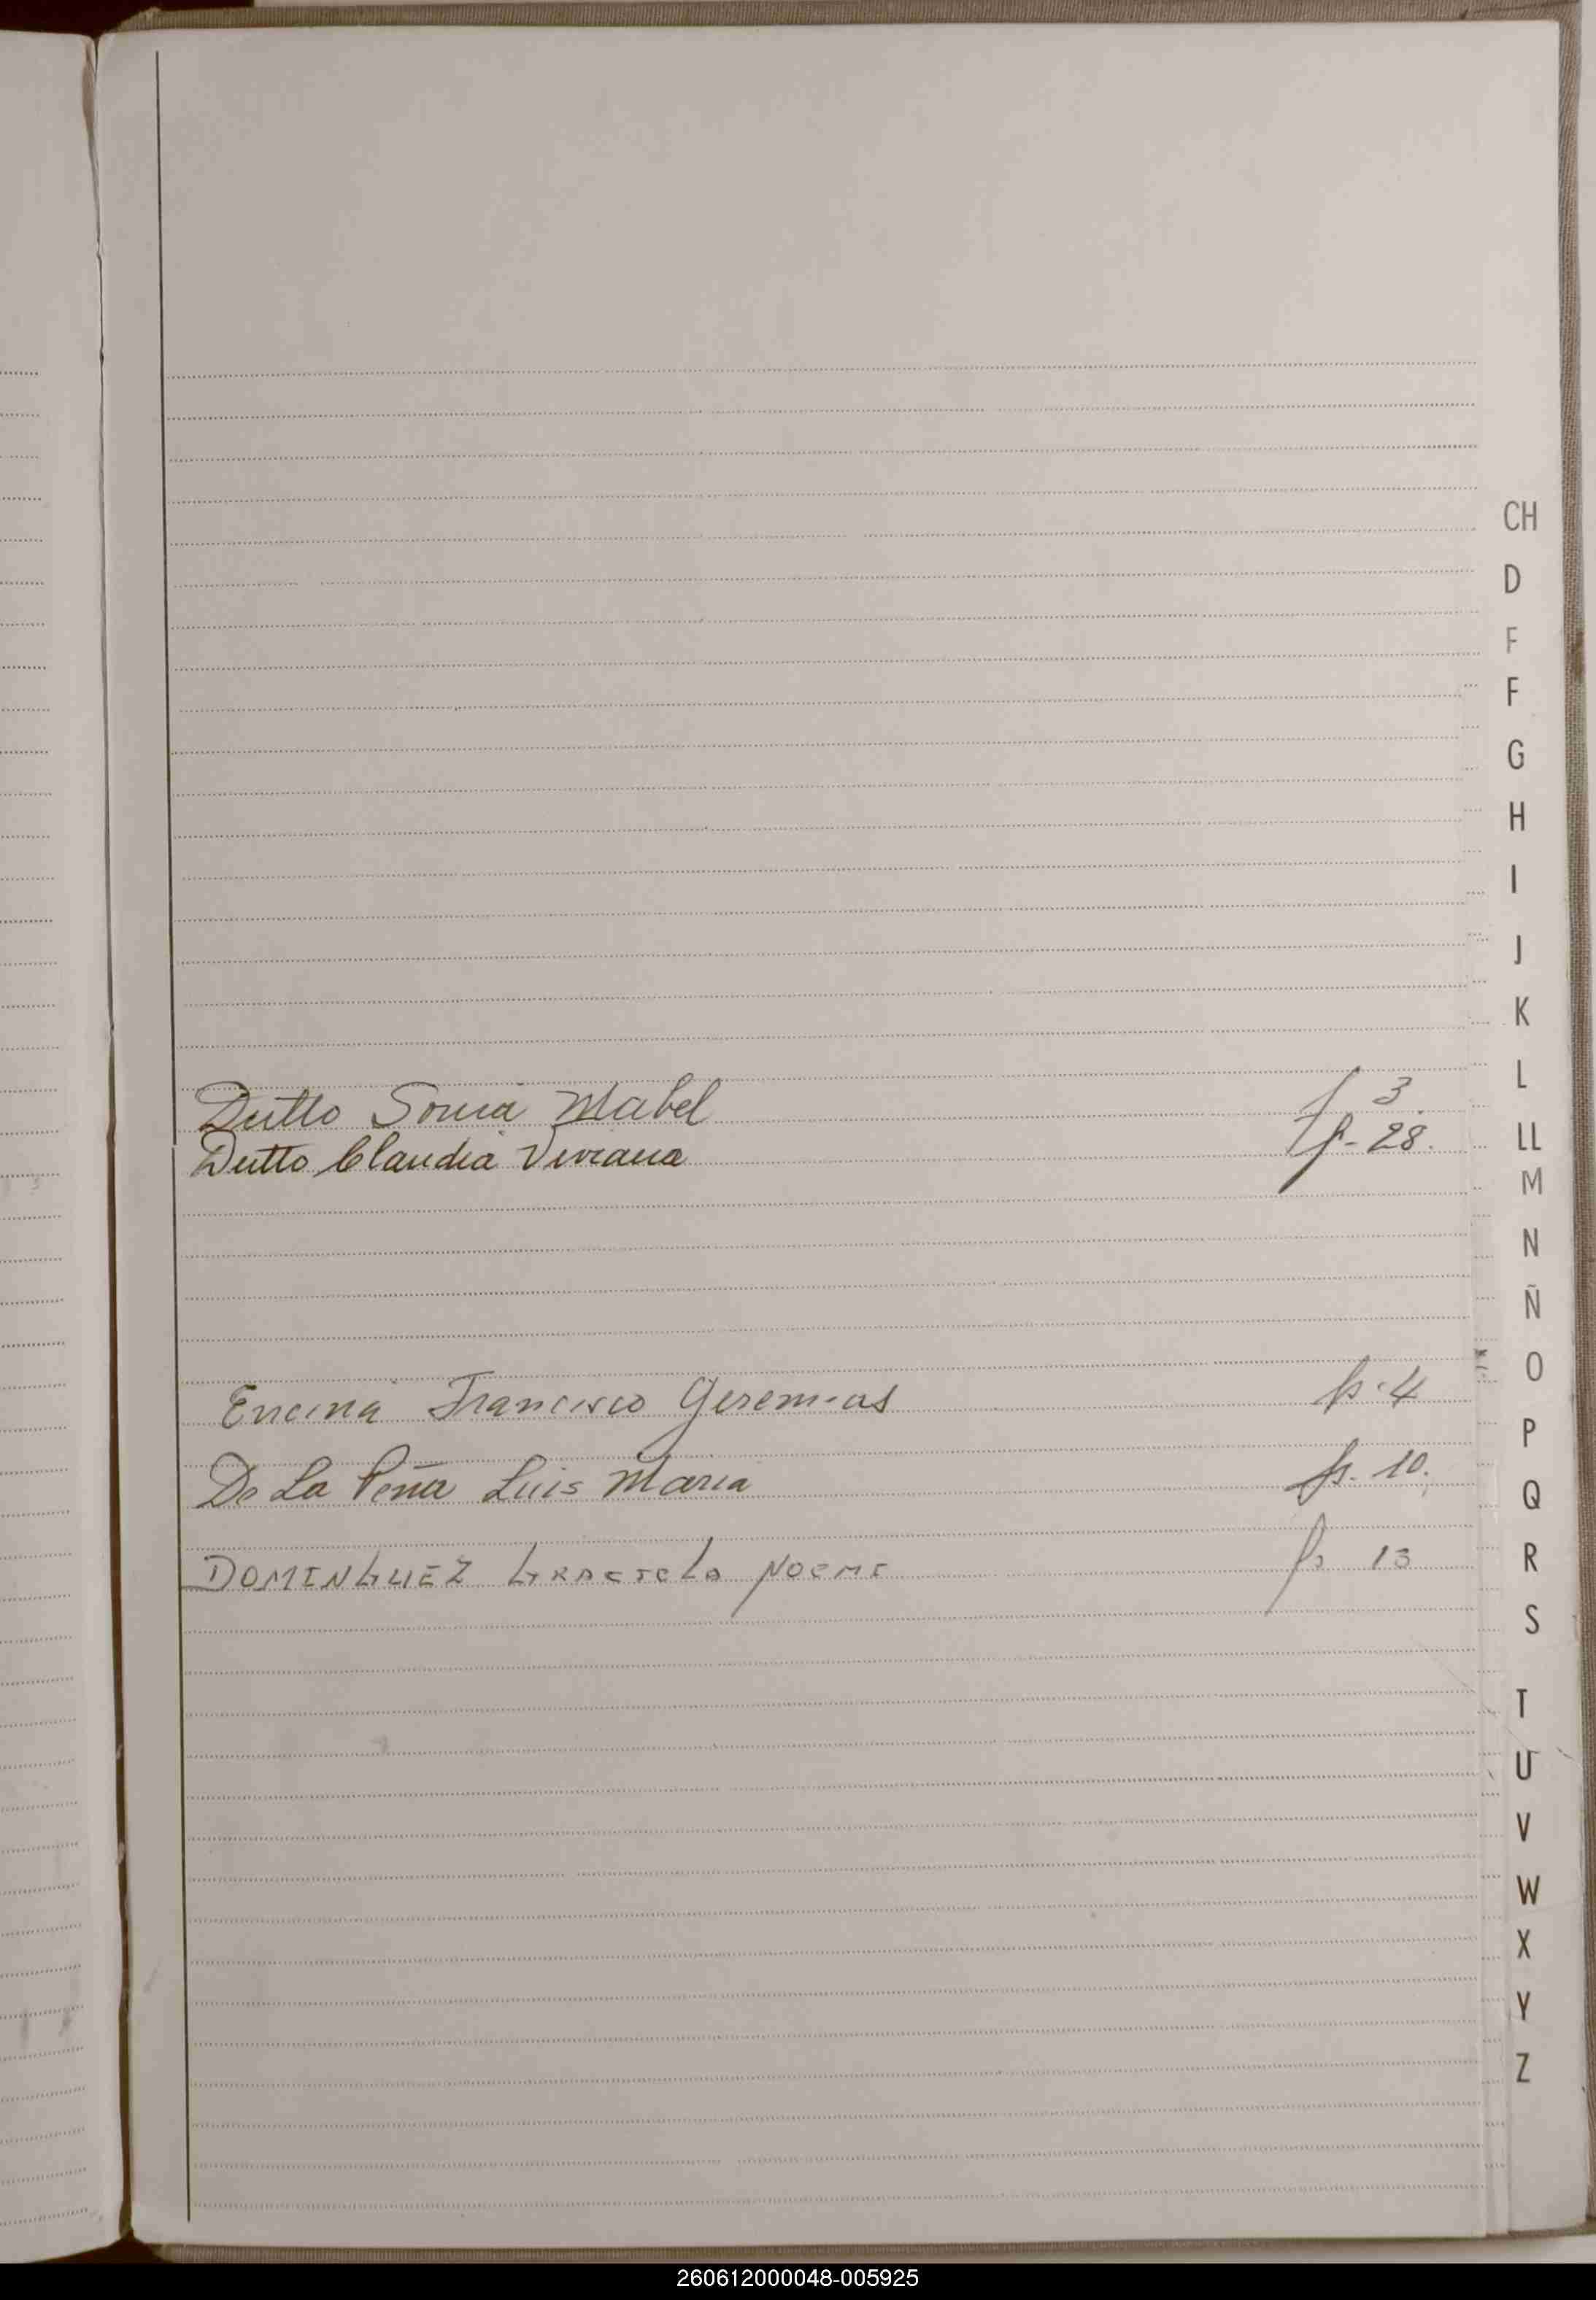 CH
D
F
F
G
H
I
J
K
L
LL
M
N
Ñ
O
P
Q
R
S
T
U
V
W
X
Y
Z
Dutto Sonia Mabel f 3.
Dutto Claudia Viviana f- 28.
Encina Francisco Geremias fs. 4
De La Peña Luis Maria fs. 10.
DOMINGUEZ GRACIELA NOEMI fs 13
260612000048-005925